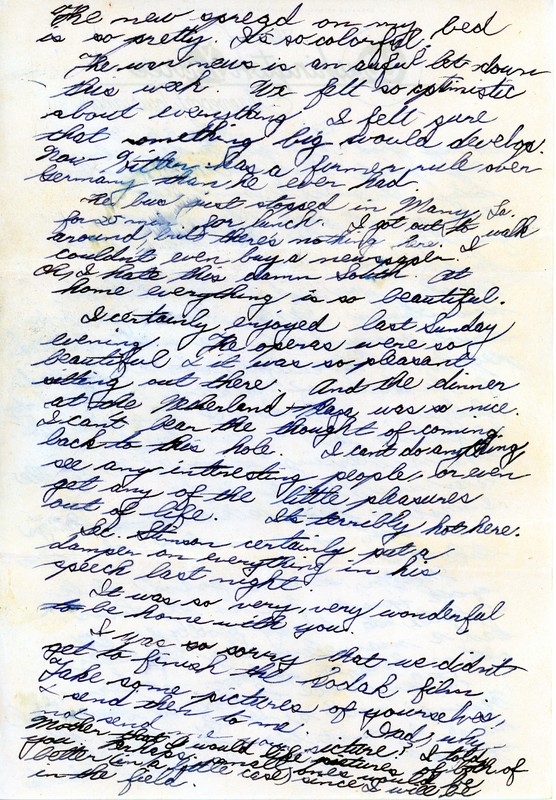 The new spread on my bed
is so pretty. It's so colorful.
The war news is an awful let-down
this week. We felt so optimistic
about everything. I felt sure
that something big would develop.
Now Hitler has a firmer rule over
Germany than he ever had.
The bus just stopped in Many, La.
for 20 min. for lunch. I got out to walk
around, but there's nothing here. I
couldn't even buy a newspaper.
Oh, I hate this damn South. At
home everything is so beautiful.
I certainly enjoyed last Sunday
evening. The operas were so
beautiful & it was so pleasant
sitting out there. And the dinner
at the Netherland Plaza was so nice.
I can't bear the thought of coming
back to this hole. I can't do anything,
see any interesting people, or even
get any of the little pleasures
out of life. It's terribly hot here.
Sec. Stimson certainly put a
damper on everything in his
speech last night.
It was so very, very wonderful
to be home with you.
I was so sorry that we didn't
get to finish the Kodak film.
Take some pictures of yourselves,
& send them to me. Dad, why
not send me your picture? I told
Mother that I would like pictures of both of
you. Perhaps small ones would be
better (in a little case) since I will be
in the field.